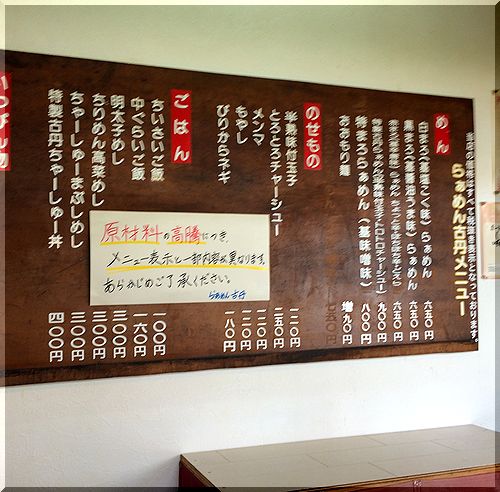 当店の価格はすべて税込み表示となっております。
らぁめん古丹メニュー
めん
白まろ(基本こく味)らぁめん 六五〇円
黒まろ(基醤油うま味)らぁめん 六五〇円
六五〇円
九〇〇円
特まろらぁめん(基味噌味) 八〇〇円
おおもり麺 増九〇円
のせもの
半熟味付玉子 一二〇円
とろとろチャーシュー 二五〇円
メンマ 一二〇円
もやし 一〇〇円
ぴりからネギ 一八〇円
ごはん
ちいさいご飯 一〇〇円
中ぐらいご飯 一六〇円
明太子めし 三〇〇円
ちりめん高菜めし 三〇〇円
ちゃーしゅーまぶしめし 三〇〇円
特製古丹ちゃーしゅー丼 四〇〇円
いっぴん物
原材料の高騰につき、
メニュー表示と一部内容が異なります。
あらかじめご了承ください。
らぁめん古丹